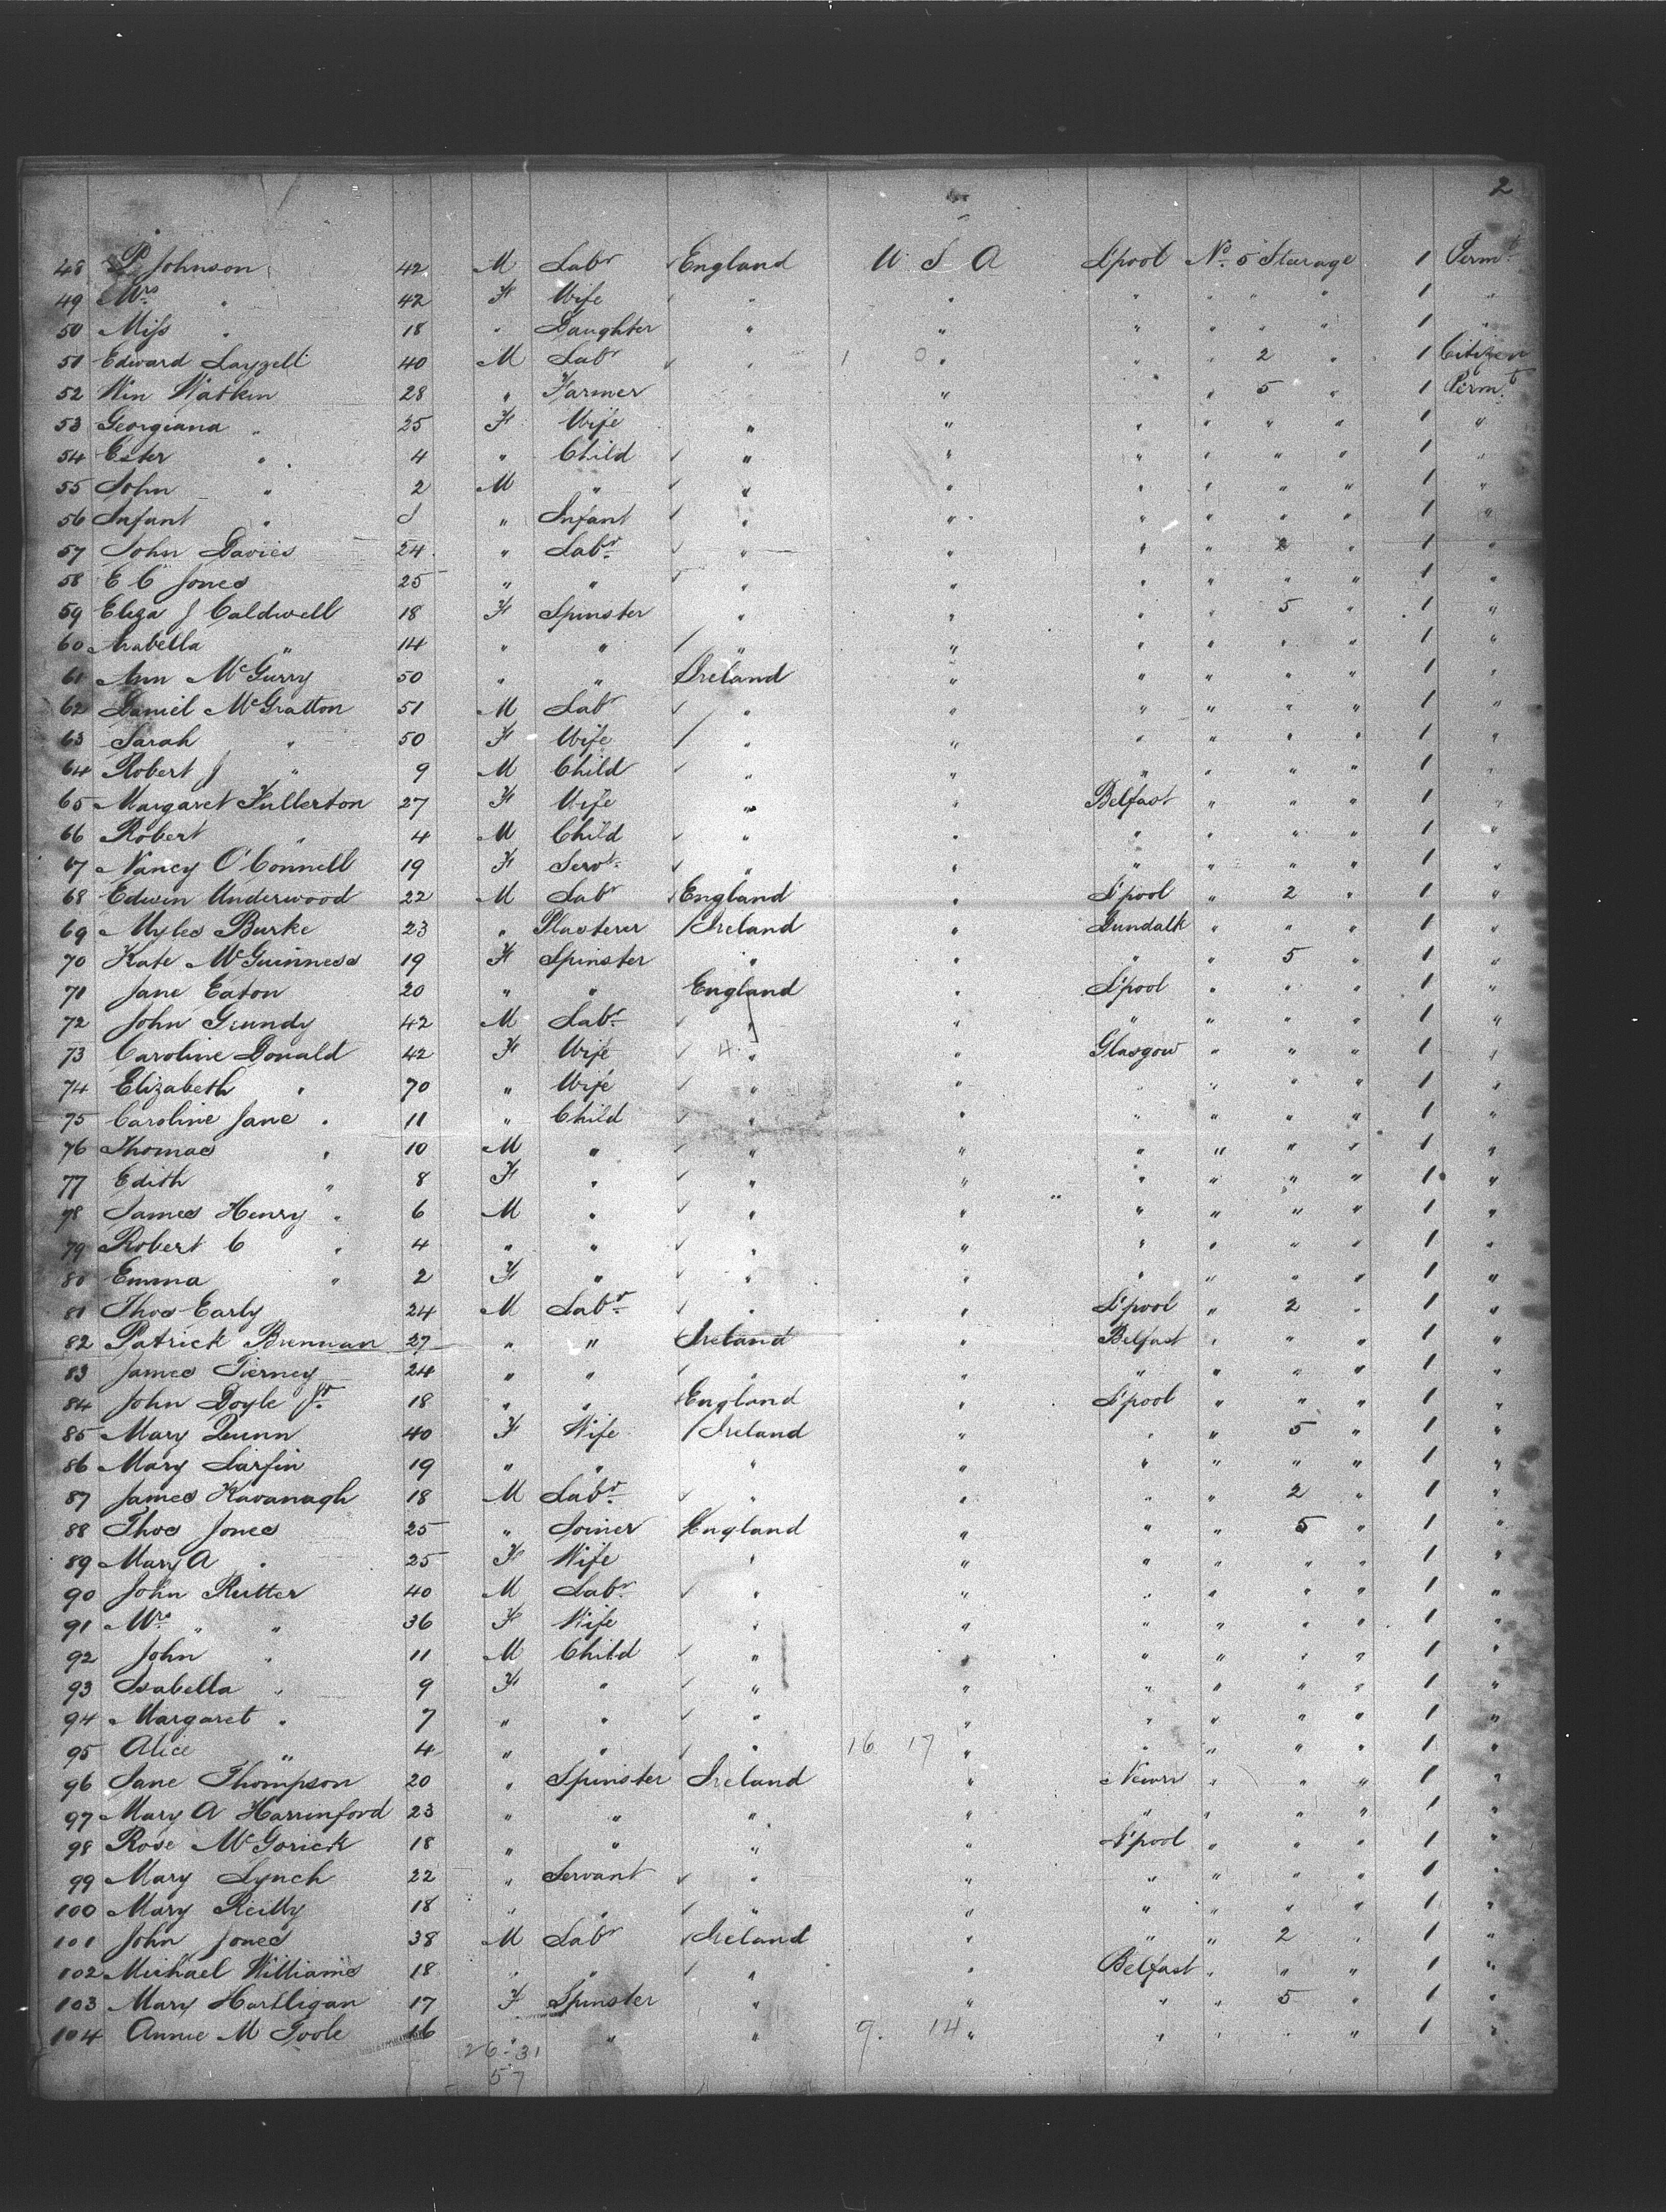 2
48 P Johnson 42 M Labr England U S A L'pool No 5 Steerage 1 Permt
49 Mrs " 42 F Wife " " " " " " 1 "
50 Miss " 18 " Daughter " " " " " " 1 "
51 Edward Layzell 40 M Labr " " " " 2 " 1 Citizen
52 Wm Watkin 28 " Farmer " " 5 " 1 Permt
53 Georgiana " 25 F Wife " " " " " " 1 "
54 Ester " 4 " Child " " " " " " 1 "
55 John " 2 M " " " " " " " 1 "
56 Infant " " Infant " " " " " " 1 "
57 John Davies 24 " Labr " " " " 2 " 1 "
58 E C Jones 25 " " " " " " " " 1 "
59 Eliza J Caldwell 18 F Spinster " " " " 5 " 1 "
60 Arabella " 14 " " " " " " " " 1 "
61 Ann McGurry 50 " " Ireland " " " " " 1 "
62 Daniel McGratton 51 M Labr " " " " " " 1 "
63 Sarah " 50 F Wife " " " " " " 1 "
64 Robert J " 9 M Child " " " " " " 1 "
65 Margaret Fullerton 27 F Wife " " Belfast " " " 1 "
66 Robert " 4 M Child " " " " " " 1 "
67 Nancy O'Connell 19 F Servt " " " " " " 1 "
68 Edwin Underwood 22 M Labr England " L'pool " 2 " 1 "
69 Myles Burke 23 " Plasterer Ireland " Dundalk " " " 1 "
70 Kate McGuinness 19 F Spinster " " " " 5 " 1 "
71 Jane Eaton 20 " " England " L'pool " " " 1 "
72 John Grundy 42 M Labr " " " " " " 1 "
73 Caroline Donald 42 F Wife " " Glasgow " " " 1 "
74 Elizabeth " 70 " Wife " " " " " " 1 "
75 Caroline Jane " 11 " Child " " " " " " 1 "
76 Thomas " 10 M " " " " " " " 1 "
77 Edith " 8 F " " " " " " " 1 "
78 James Henry " 6 M " " " " " " " 1 "
79 Robert C " 4 " " " " " " " " 1 "
80 Emma " 2 F " " " " " " " 1 "
81 Thos Early 24 M Labr " " L'pool " 2 " 1 "
82 Patrick Brennan 27 " " Ireland " Belfast " " " 1 "
83 James Tierney 24 " " " " " " " " 1 "
84 John Doyle Jr 18 " " England " L'pool " " " 1 "
85 Mary Quinn 40 F Wife Ireland " " " 5 " 1 "
86 Mary Larfin 19 " " " " " " " " 1 "
87 James Kavanagh 18 M Labr " " " " 2 " 1 "
88 Thos Jones 25 " Joiner England " " " 5 " 1 "
89 Mary A " 25 F Wife " " " " " " 1 "
90 John Rutter 40 M Labr " " " " " " 1 "
91 Mrs " " 36 F Wife " " " " " " 1 "
92 John " 11 M Child " " " " " " 1 "
93 Isabella " 9 F " " " " " " " 1 "
94 Margaret " 7 " " " " " " " " 1 "
95 Alice " 4 " " " 16 17 " " " " " 1 "
96 Jane Thompson 20 " Spinster Ireland " Newry " " " 1 "
97 Mary A Harrinford 23 " " " " " " " " 1 "
98 Rose McGorick 18 " " " " L'pool " " " 1 "
99 Mary Lynch 22 " Servant " " " " " " 1 "
100 Mary Reilly 18 " " " " " " " " 1 "
101 John Jones 38 M Labr Ireland " " " 2 " 1 "
102 Michael Williams 18 " " " " Belfast " " " 1 "
103 Mary Hartligan 17 F Spinster " " " " 5 " 1 "
104 Annie M Toole 16 " " " 9. 14 " " " " " 1 "
26-31
57